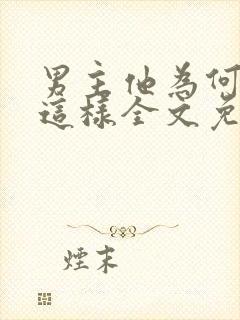 男主他為何
這樣全文免
煙末